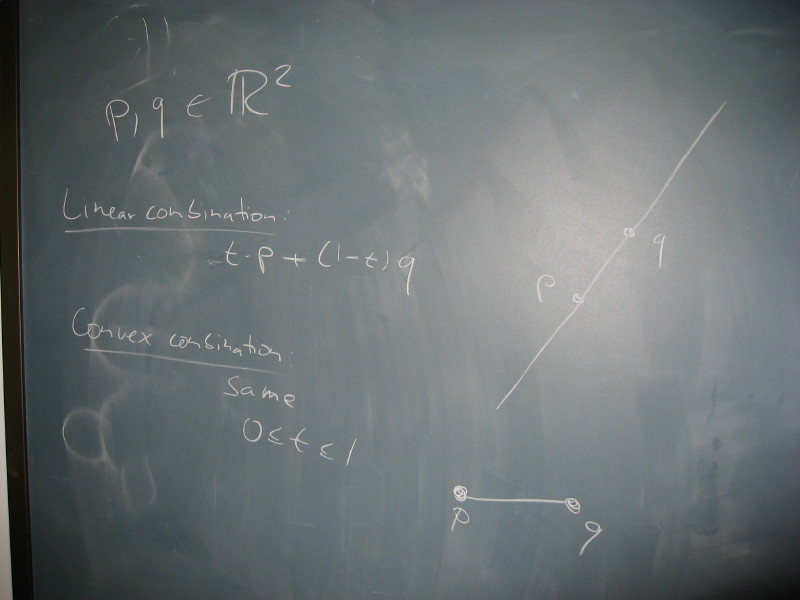 p, q ∈ ℝ²
Linear combination:
t·p + (1-t) q
Convex combination:
Same
0 ≤ t ≤ 1
q
p
p
q